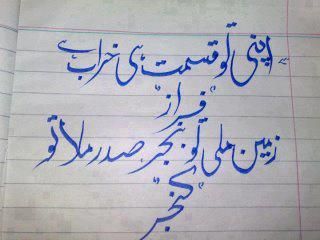 اپنی تو قسمت ہی خراب ہے
"فراز"
زمین ملی تو بنجر صدر ملا تو
"کنجر"